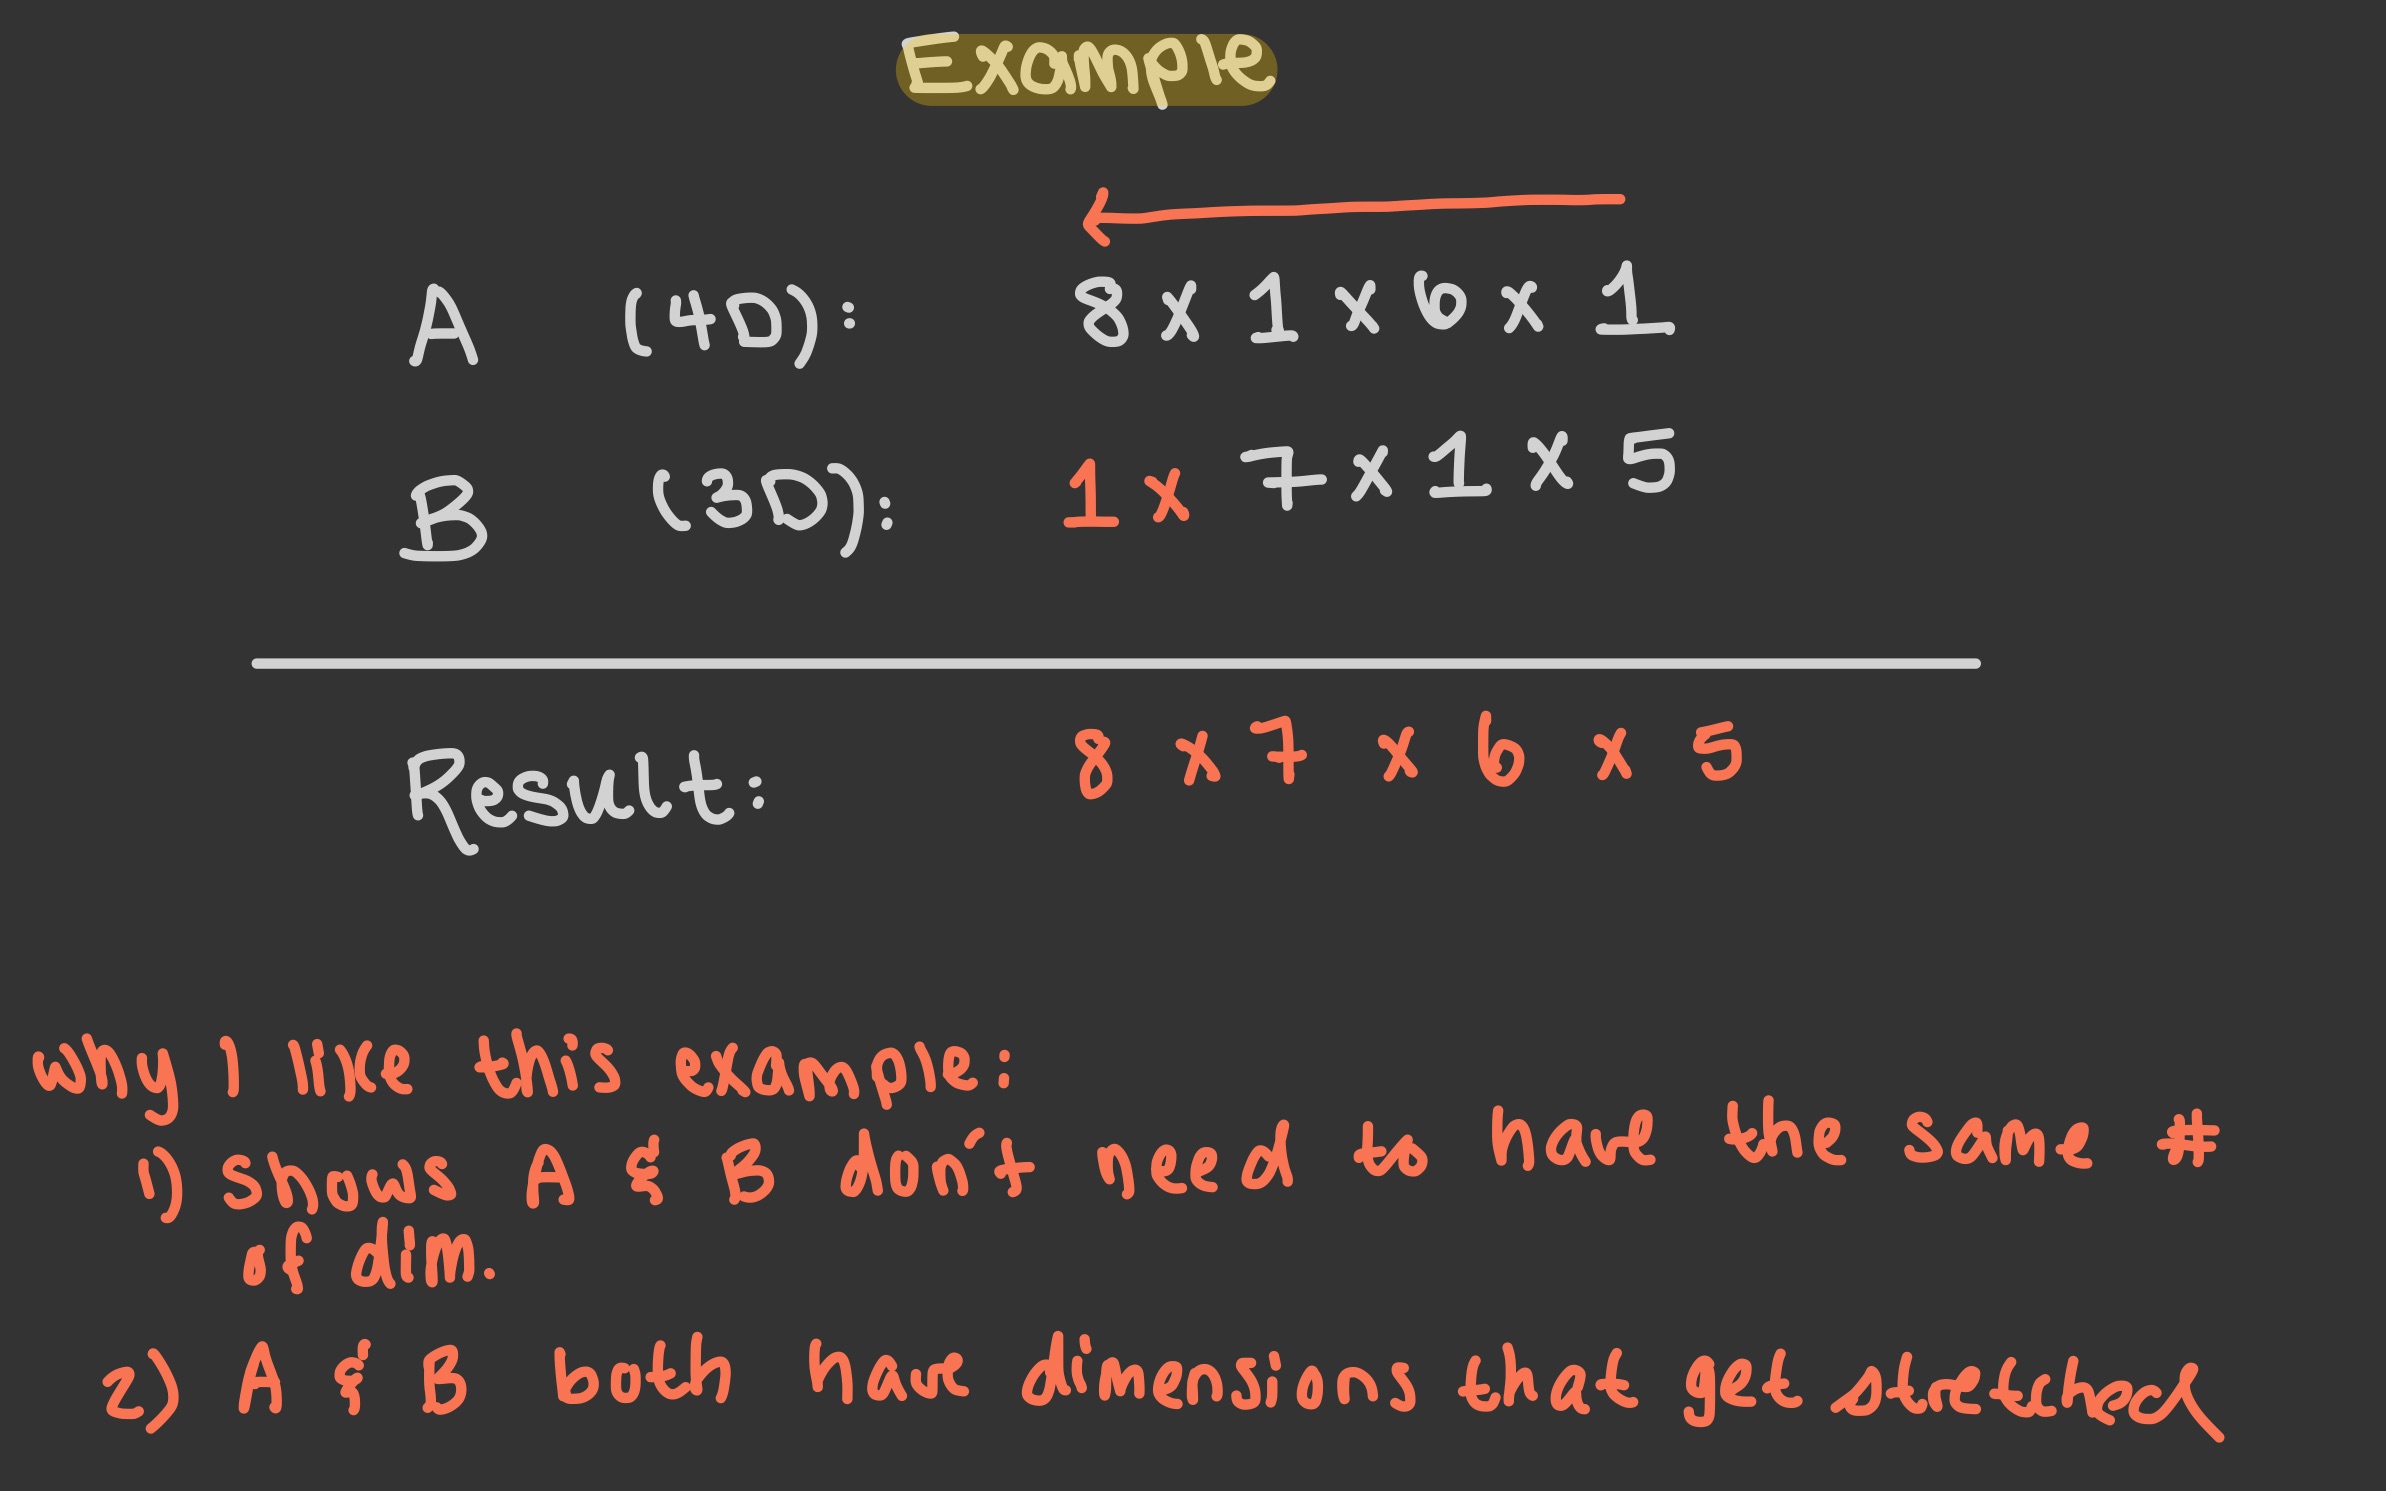 Example
A (4D): 8 x 1 x 6 x 1
B (3D): 1 x 7 x 1 x 5
Result: 8 x 7 x 6 x 5
Why I like this example:
1) shows A & B don't need to have the same #
of dim.
2) A & B both have dimensions that get stretched